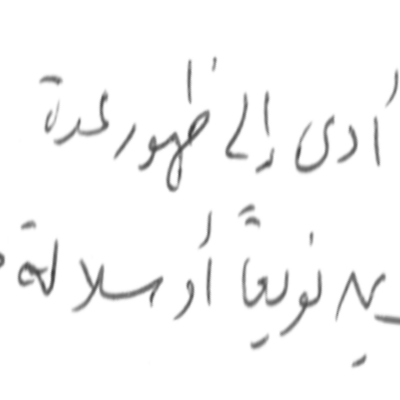 أدى إلى ظهور عدة
نويعاً أو سلالة